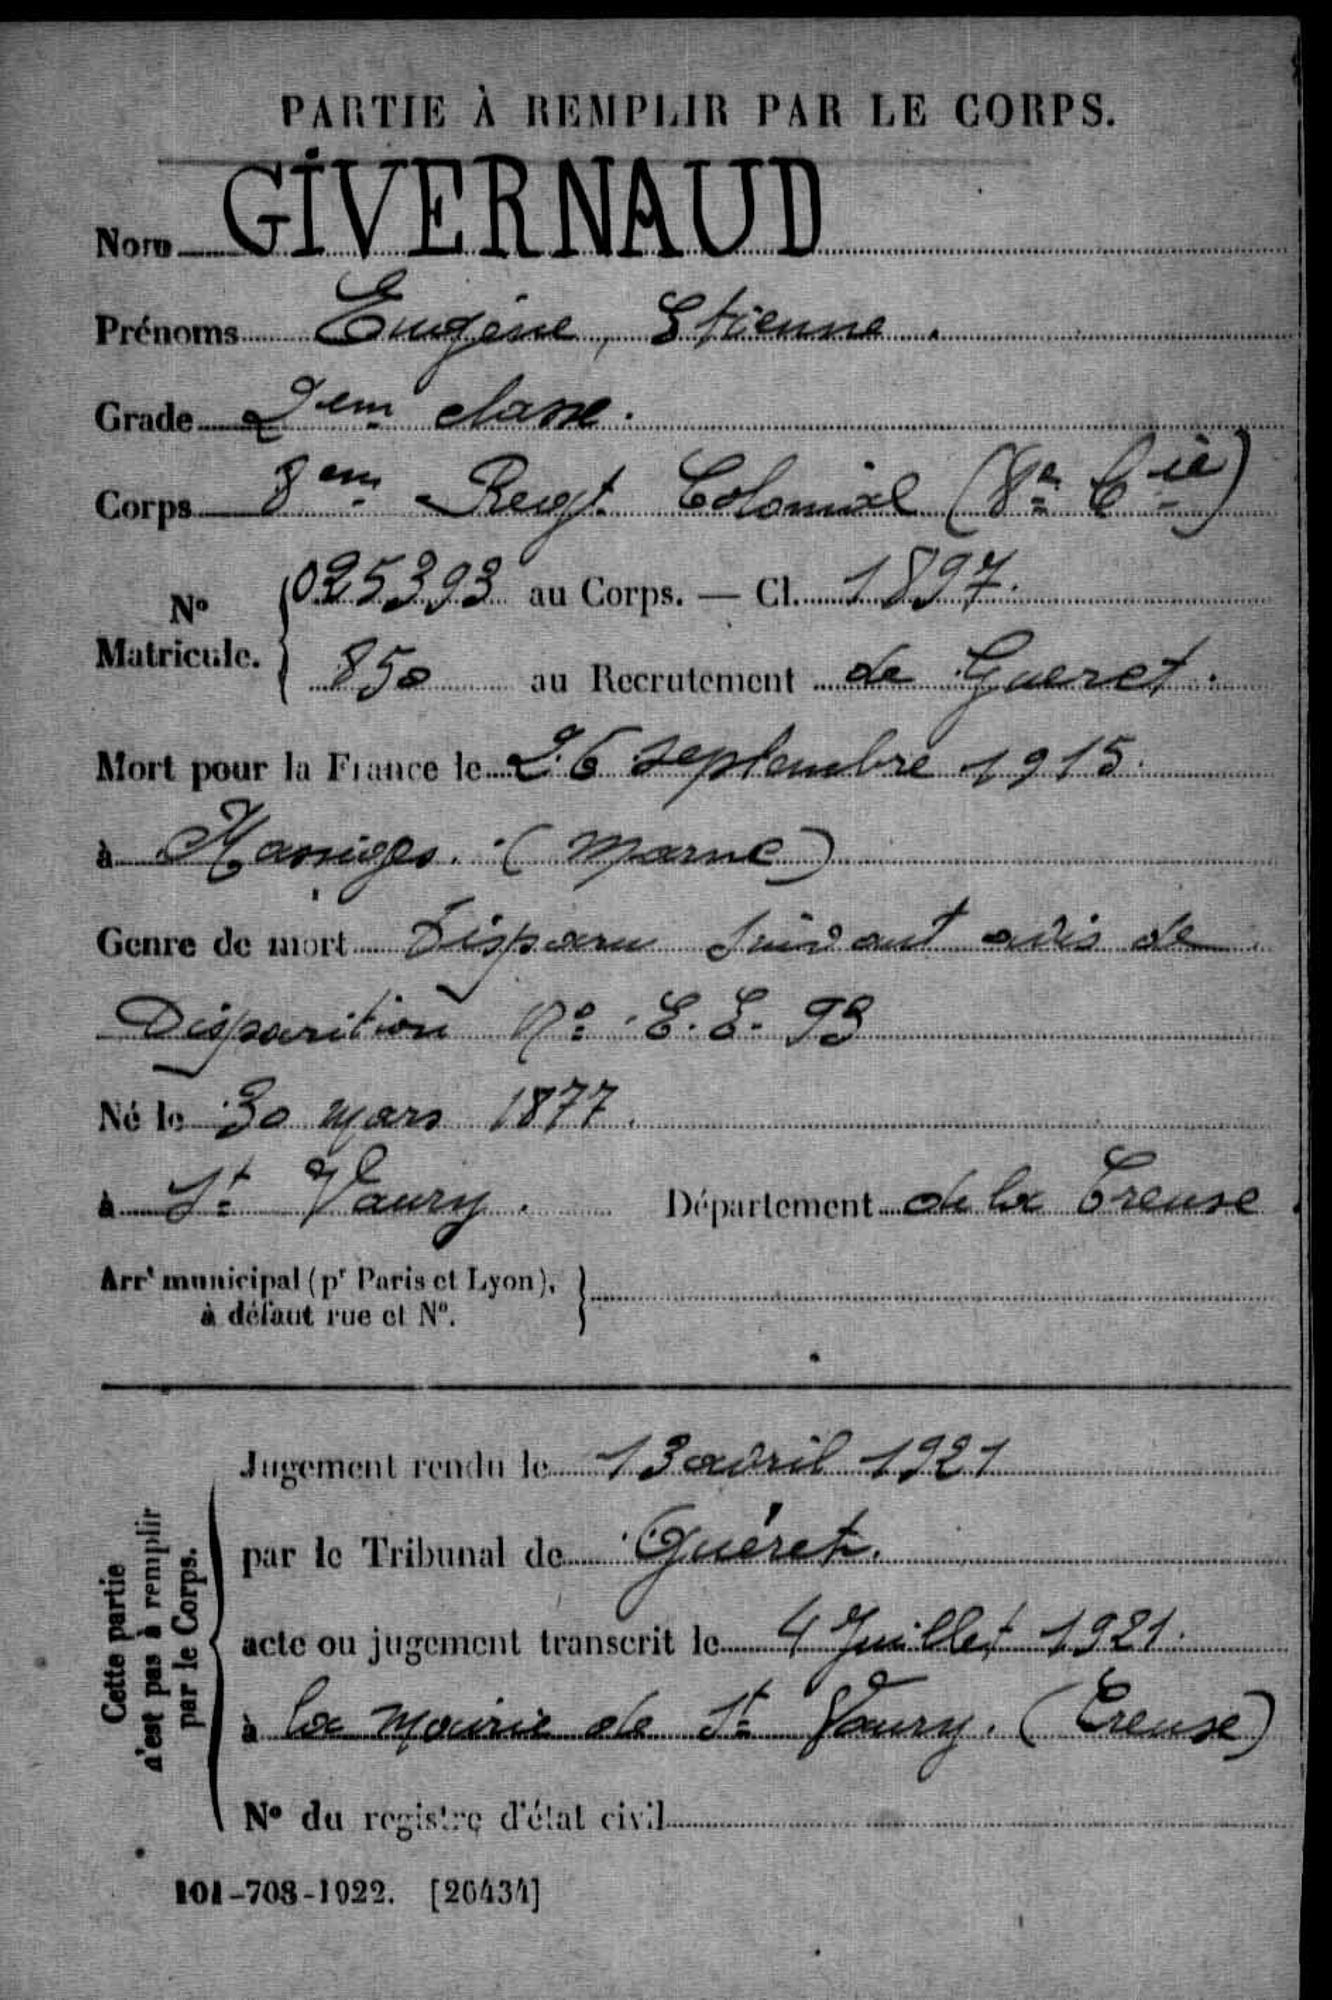 PARTIE À REMPLIR PAR LE CORPS.
Nom GIVERNAUD
Prénoms Eugène, Etienne.
Grade 2em classe.
Corps 8em Regt. Colonial (8e Cie)
N° Matricule. { 025393 au Corps. — Cl. 1897.
850 au Recrutement de Gueret.
Mort pour la France le 26 septembre 1915.
à Massiges. (Marne)
Genre de mort Disparu suivant avis de
Disparition No. E. E. 93
Né le 30 mars 1877.
à St Vaury. Département de la Creuse.
Arrt municipal (pr Paris et Lyon), à défaut rue et N°. }
Jugement rendu le 13 avril 1921
par le Tribunal de Guéret.
acte ou jugement transcrit le 4 Juillet 1921.
à la mairie de St Vaury. (Creuse)
N° du registre d'état civil
Cette partie n'est pas à remplir par le Corps.
101-708-1922. [26434]